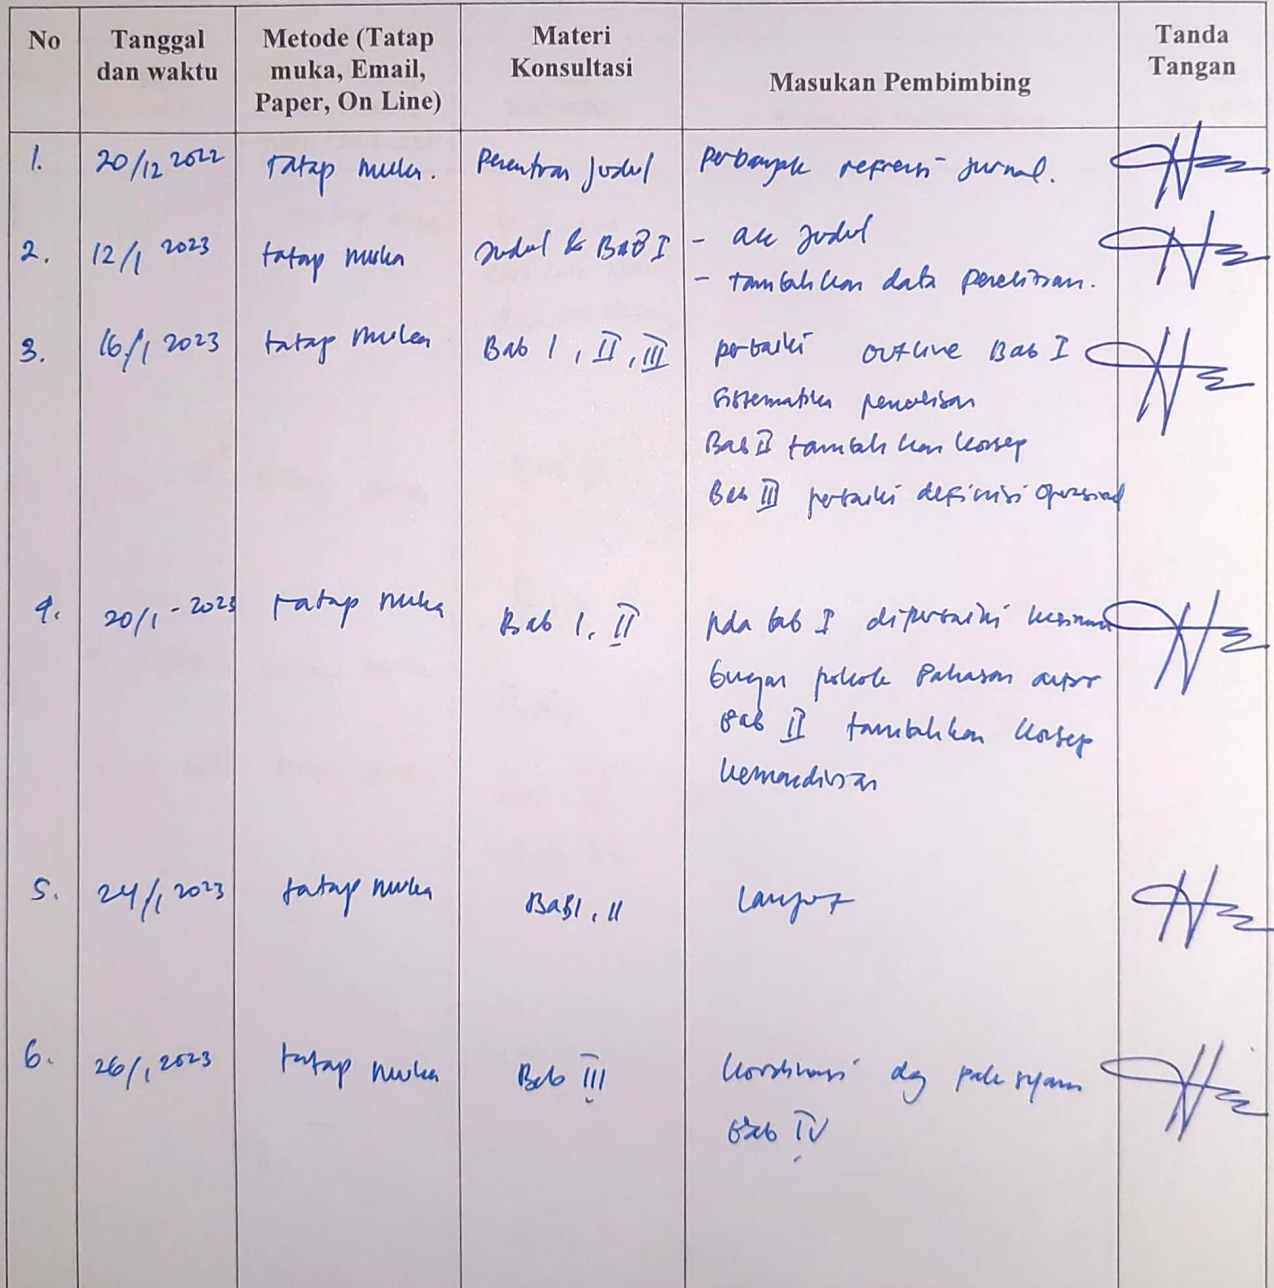 No
Tanggal
dan waktu
Metode (Tatap
muka, Email,
Paper, On Line)
Materi
Konsultasi
Masukan Pembimbing
Tanda
Tangan
1.
20/12 2022
tatap muka.
judul
perbanyak refrensi jurnal.
2.
12/1 2023
tatap muka
Judul & BAB I
- acc judul
- tambahkan data penelitian.
3.
16/1 2023
tatap muka
Bab I, II, III
perbaiki outline Bab I
sistematika penulisan
Bab II tambahkan konsep
Bab III perbaiki definisi operasional
4.
20/1 - 2023
tatap muka
Bab I, II
pda bab I diperbaiki
pokok Bahasan antar
Bab II tambahkan konsep
kemandirian
5.
24/1 2023
tatap muka
Bab I, II
Lanjut
6.
26/1 2023
tatap muka
Bab III
kordinasi dg pak syam
Bab IV